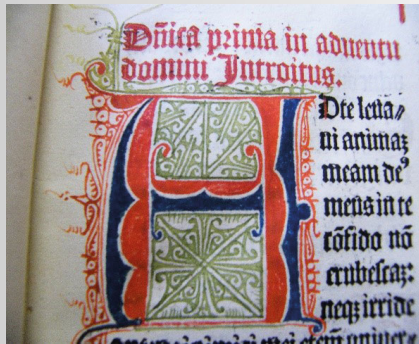 Dñica prima in aduentu
domini Introitus.
A Dte leua⸗
ui animaꝫ
meam de⁹
meus in te
cõfido nõ
erubescaꝫ
neqꝫ irride